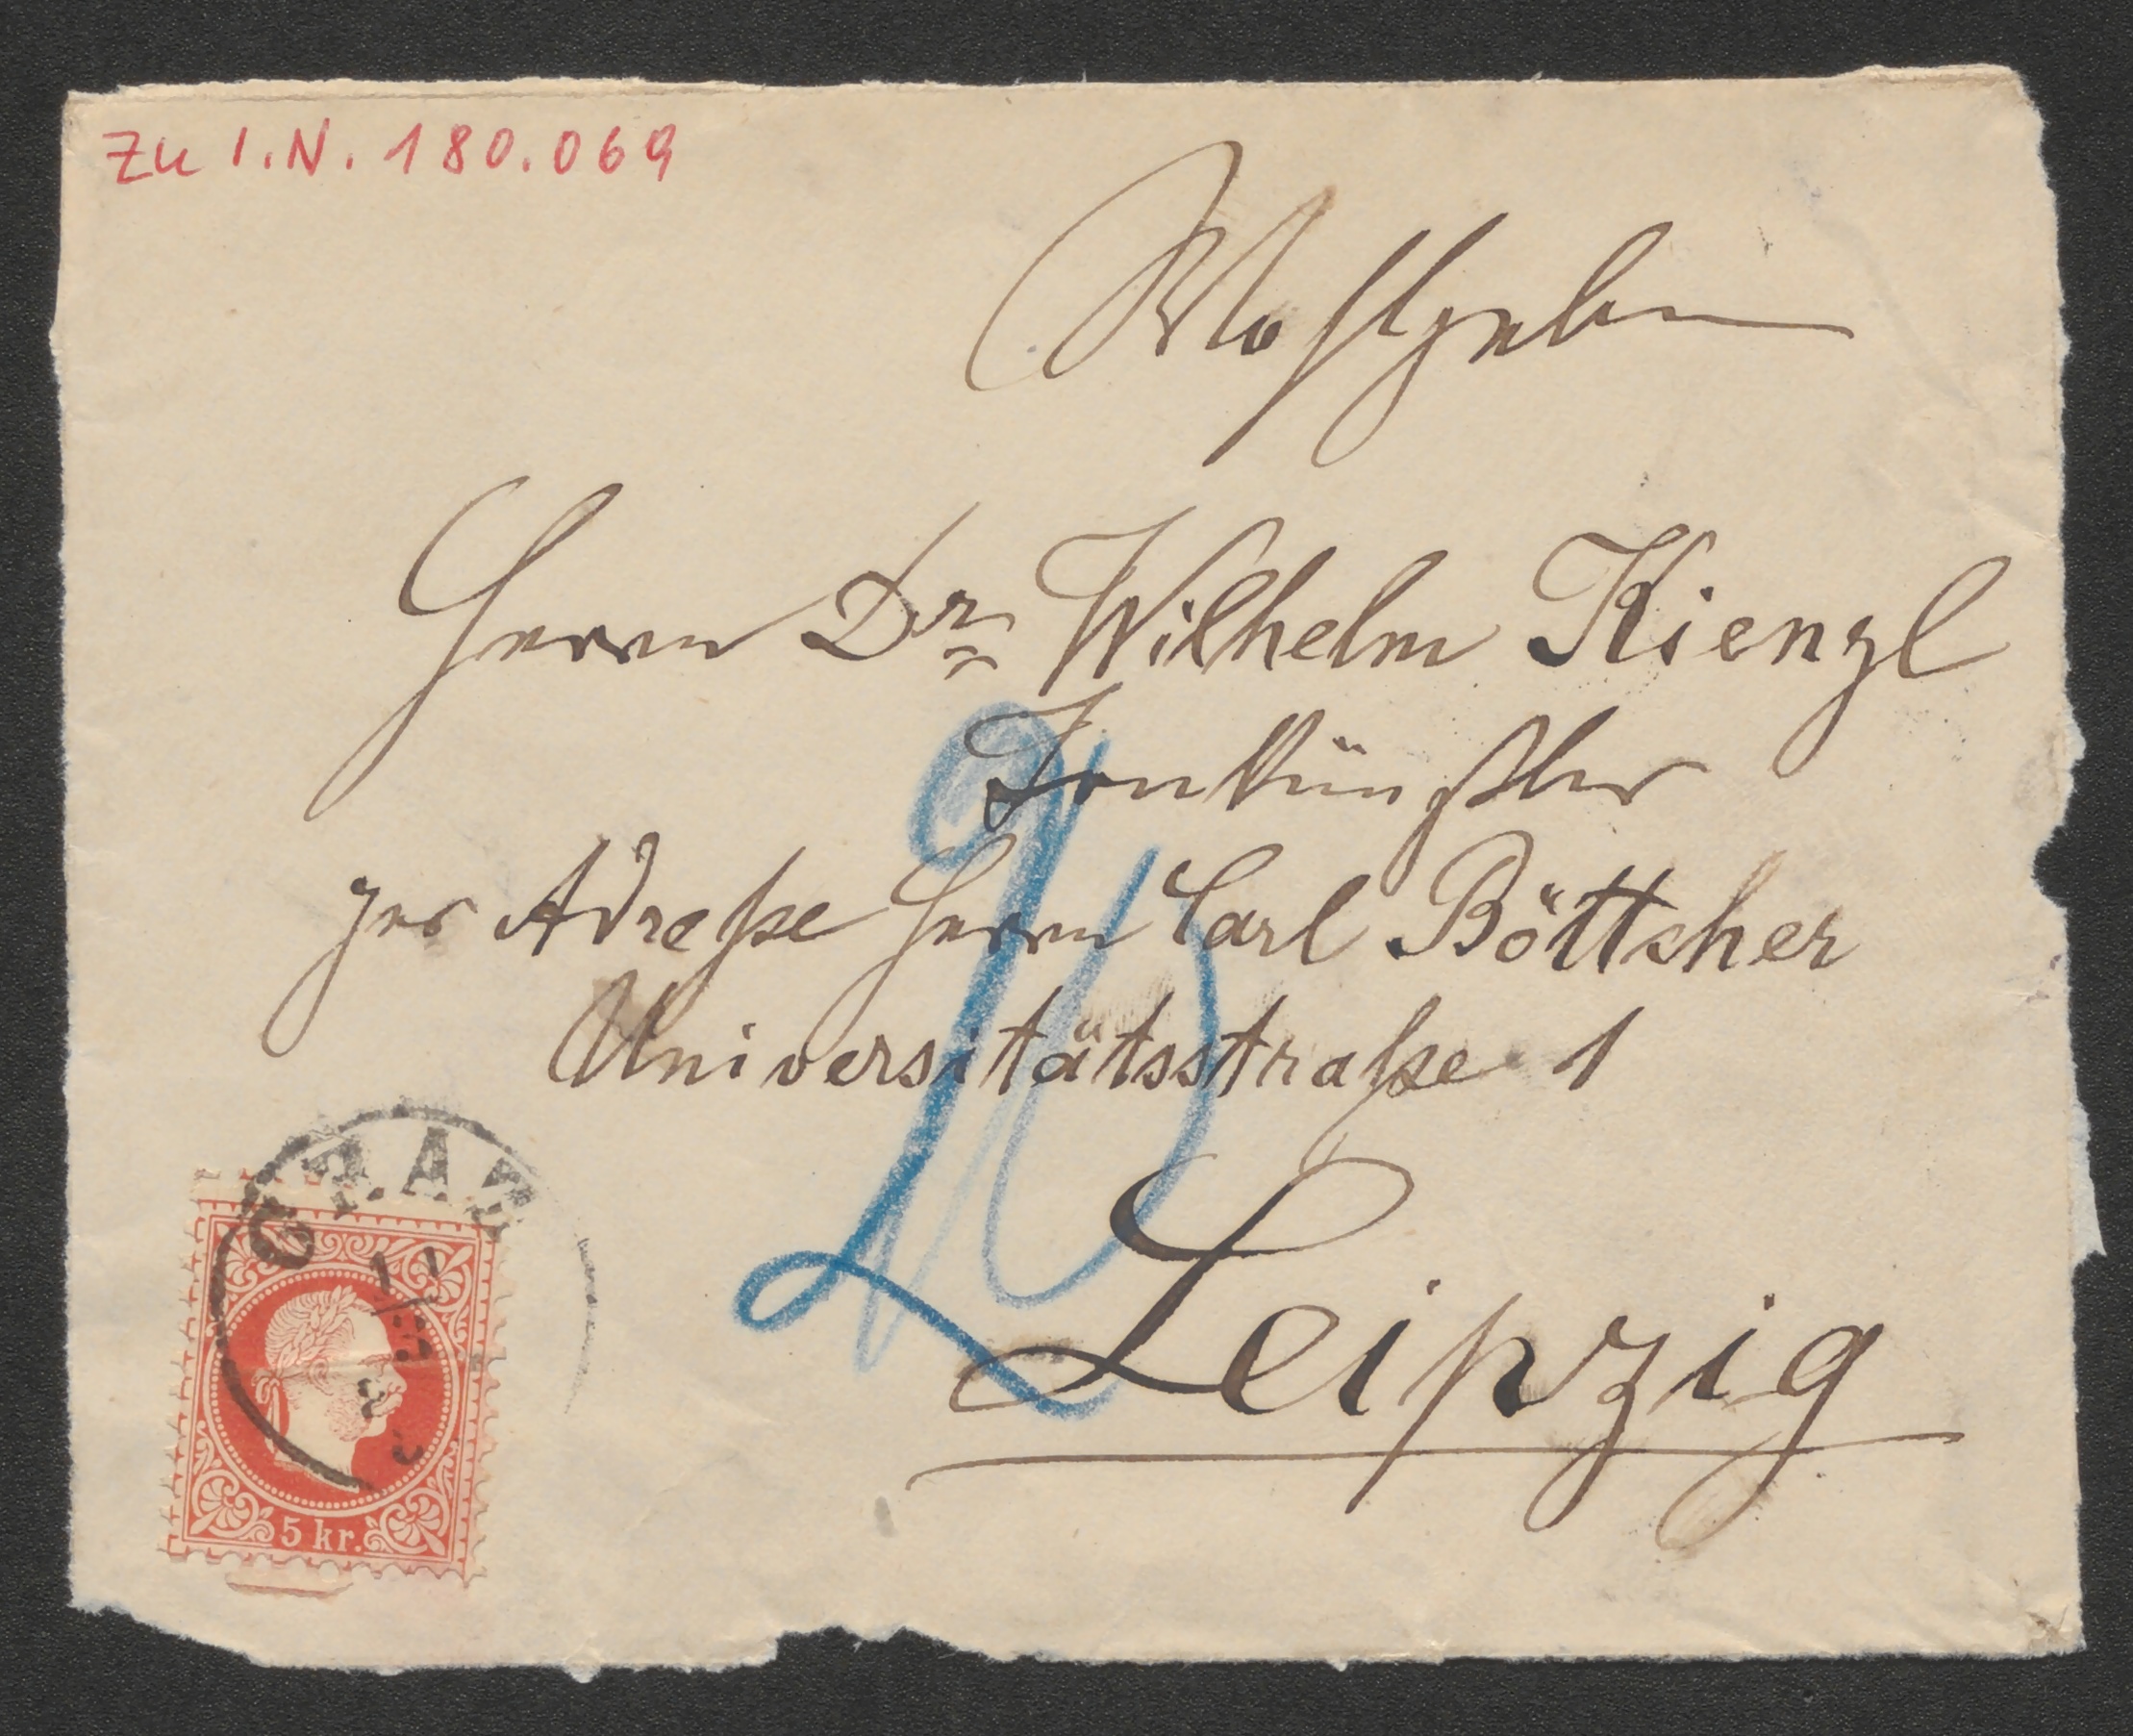 Zu I.N. 180.069
Wohlgeboren
Herrn Dr. Wilhelm Kienzl
Tonkünstler
per Adreße Herrn Carl Böttcher
Universitätsstraße 1
Leipzig
GRAZ
5 kr.